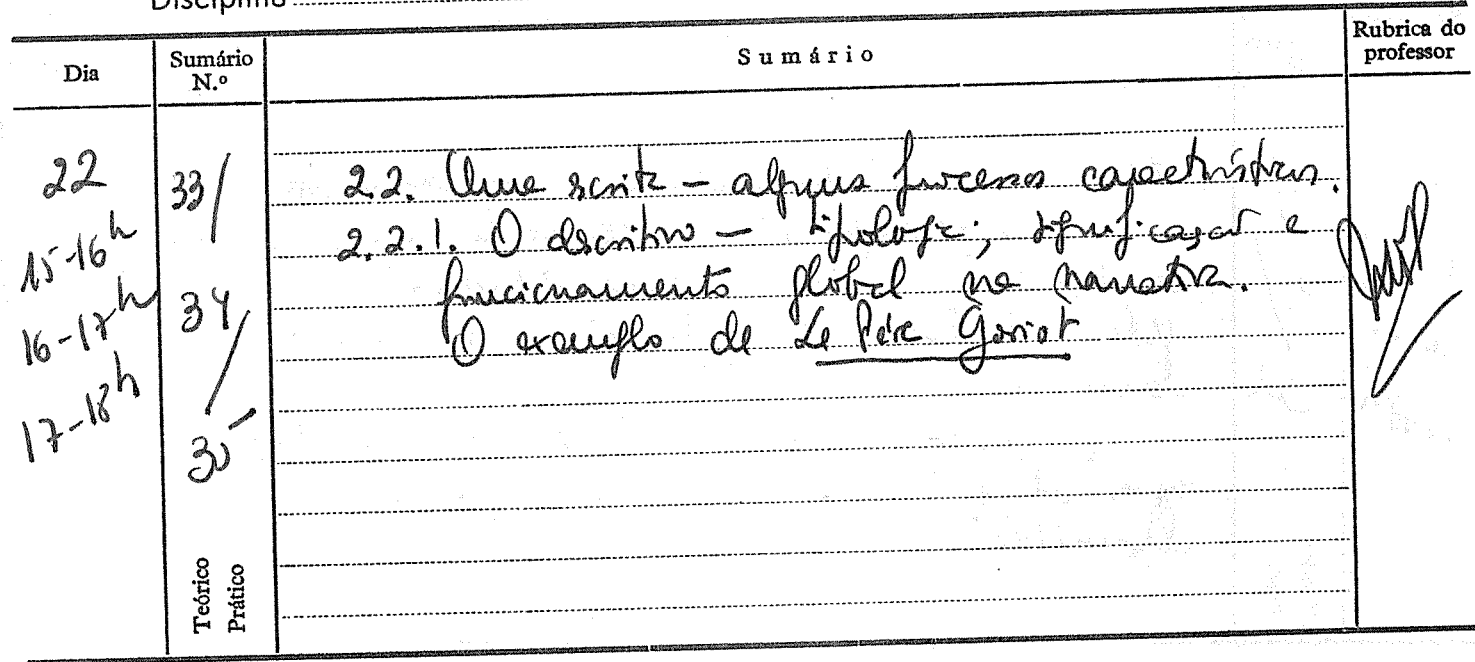 Disciplina
Dia
Sumário N.º
Sumário
Rubrica do professor
22
15-16h
16-17h
17-18h
33/
34/
35
2.2. Uma escrita – alguns processos característicos.
2.2.1. O descritivo – tipologia; significação e
funcionamento global na narrativa.
O exemplo de Le Père Goriot
Teórico
Prático